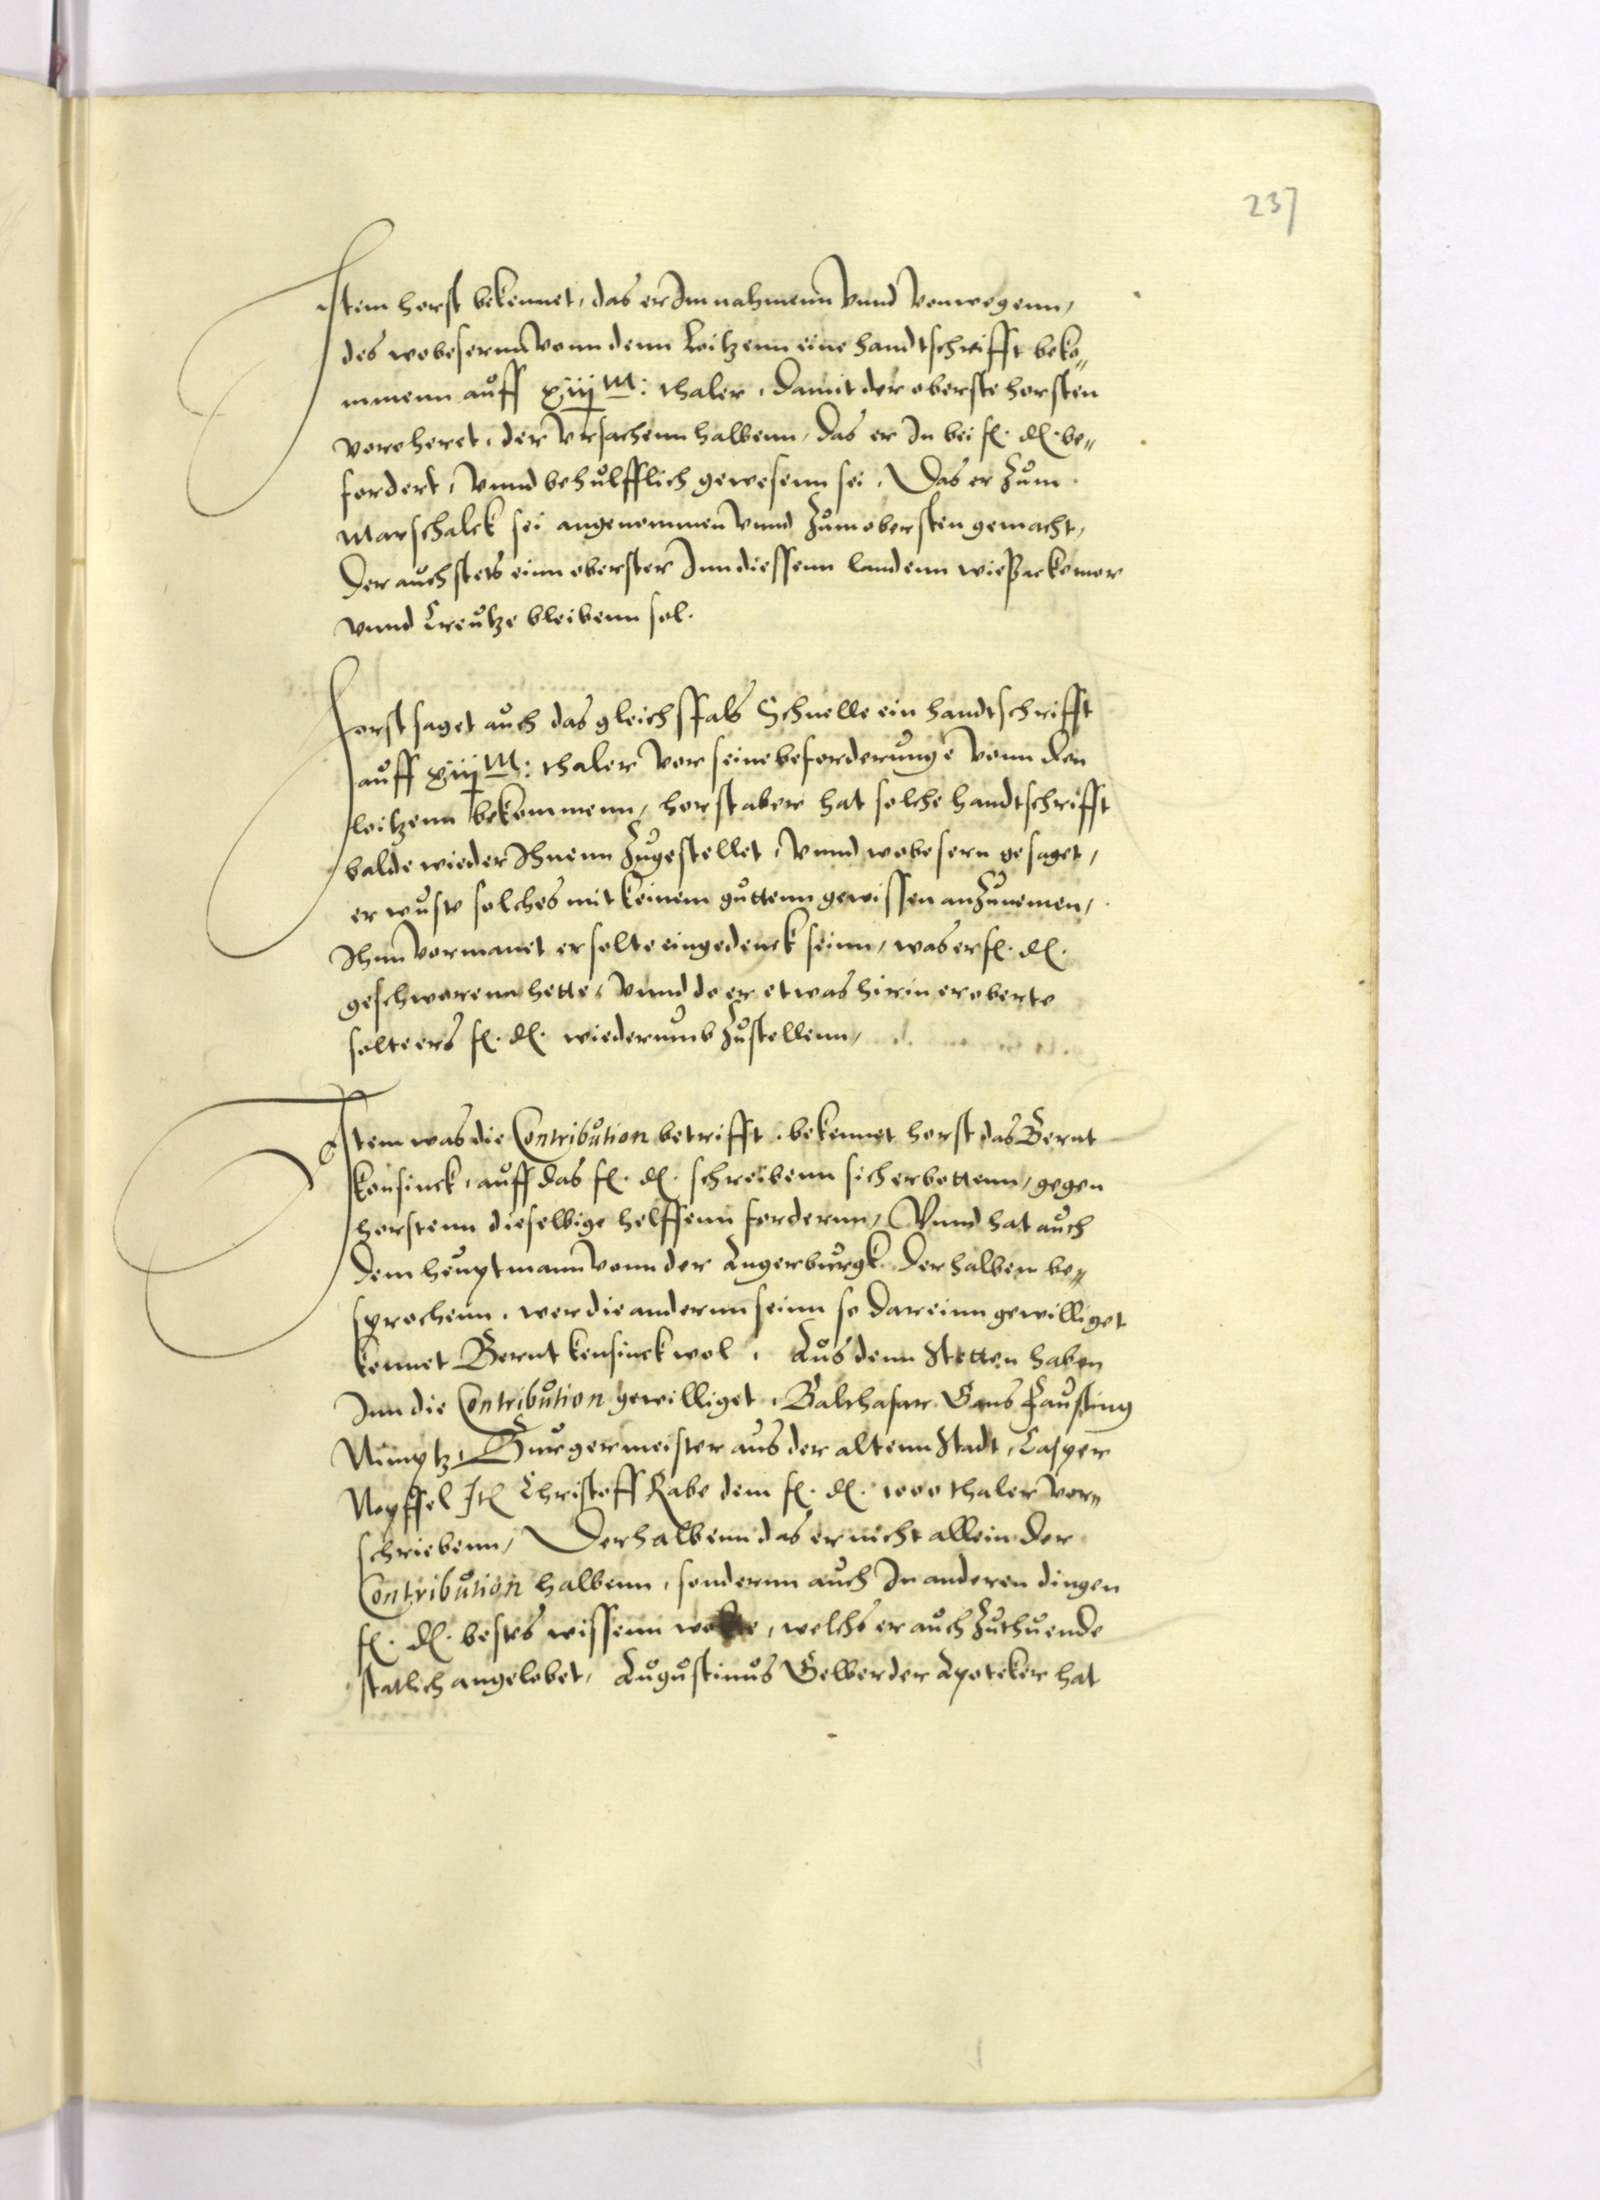 237
Item horst bekennet, das er Im nahmenn vnnd vonwegenn,
des wobesernn vonn denn Loitzenn eine handtschrifft beko„
mmenn auff xiij M: thaler, damit der oberste horsten
vorehret, der vrsachenn halbenn, das er In bei f. d. be„
fordert, vnnd behulfflich gewesenn sei, Das er Zum
Marschalck sei angenommen vnnd Zum obersten gemacht,
Der auch stets einn oberster Inn diessenn landenn wie
vnnd Creutze bleibenn sol.
Horst saget auch das gleichsfals Schnelle ein handtschrifft
auff xiij M: thaler vor seine beforderunge vonn den
loitzenn bekommenn, horst aber hat solche handtschrifft
balde wieder Ihnenn Zugestellet, vnnd wobesern gesaget,
er wuste solches mit keinem guttenn gewissen anZunemen,
Ihnn vormanet er solte eingedenck seinn, was er f. d.
geschworenn hette, vnnd do er etwas hirin eroberte
solte ers f. d. wiederumb Zustellenn,
Item was die Contribution betrifft, bekennet horst das Bernt
konsinck, auff das f. d. schreibenn sich erbottenn, gegen
horstenn dieselbige helffenn fordernn, Vnnd hat auch
dem heuptmann vonn der Angerburgk derhalben be„
sprochenn, wer die anderenn seinn so dareinn gewilliget
kennet Bernt konsinck wol, Aus denn Stetten haben
Inn die Contribution gewilliget, Balthasar Gans Fausting
Nimptz, Burgermeister aus der altenn Stadt, Casper
Nopffel It Christoff Rabe dem f. d. 1000 thaler vor„
schriebenn, Derhalbenn das er nicht allein der
Contribution halbenn, sondernn auch In anderen dingen
f. d. bestes wissenn wolte, welchs er auch Zuthuende
statlich angelobet, Augustinus Gelber der Apoteker hat